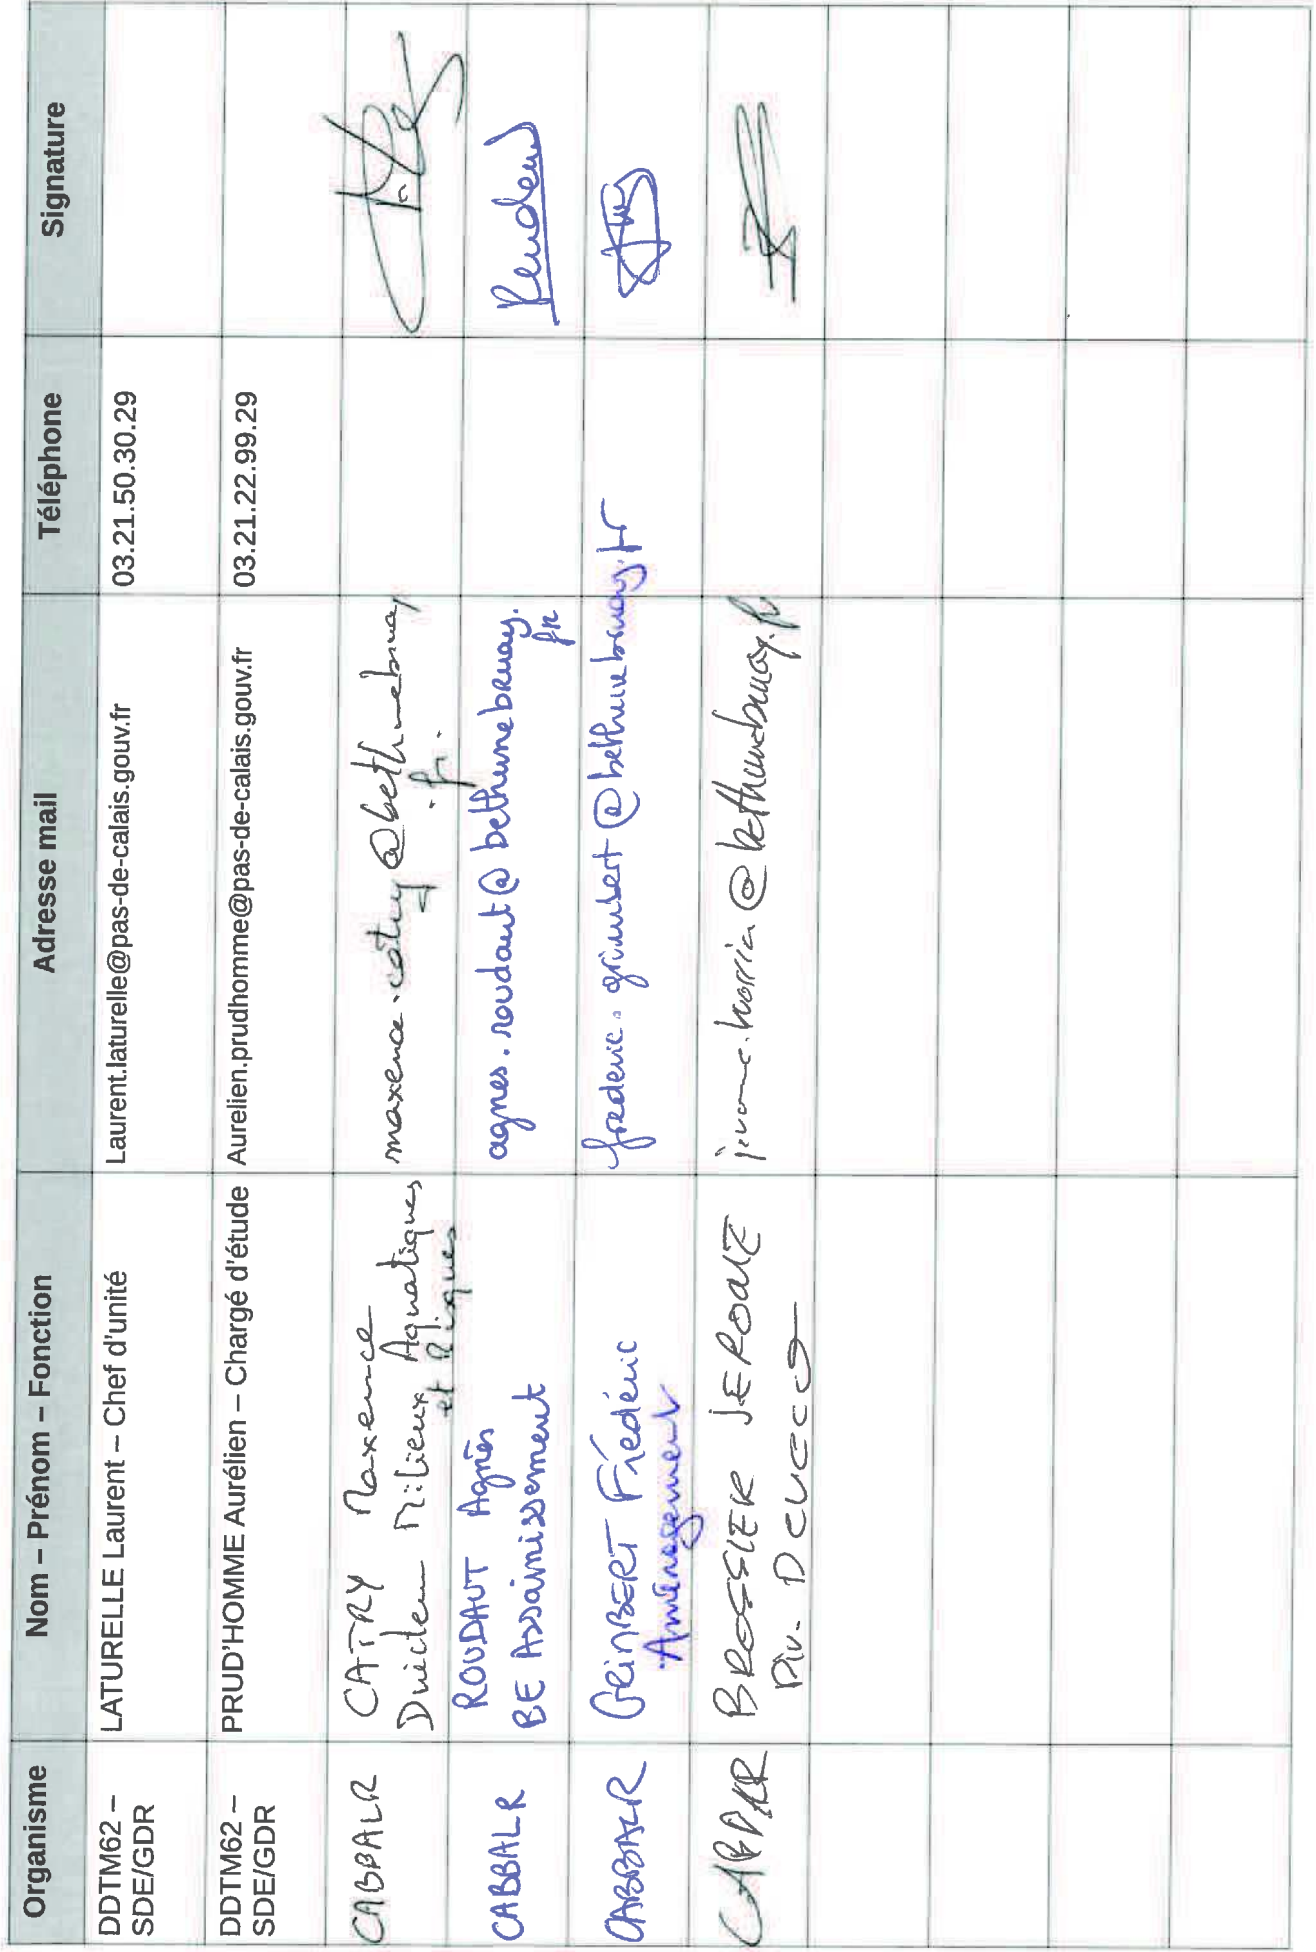 Organisme Nom – Prénom – Fonction Adresse mail Téléphone Signature
DDTM62 –
SDE/GDR
LATURELLE Laurent – Chef d'unité
Laurent.laturelle@pas-de-calais.gouv.fr
03.21.50.30.29
DDTM62 –
SDE/GDR
PRUD'HOMME Aurélien – Chargé d'étude
Aurelien.prudhomme@pas-de-calais.gouv.fr
03.21.22.99.29
CABBALR
CATRY Maxence
Directeur Milieux Aquatiques
et Risques
maxence.catry@bethunebruay
.fr.
CABBALR
ROUDAUT Agnès
BE Assainissement
agnes.roudaut@bethunebruay.
fr
CABBALR
GRIMBERT Frédéric
Aménagement
frederic.grimbert@bethunebruay.fr
CABBALR
JEROME
@bethunebruay.fr